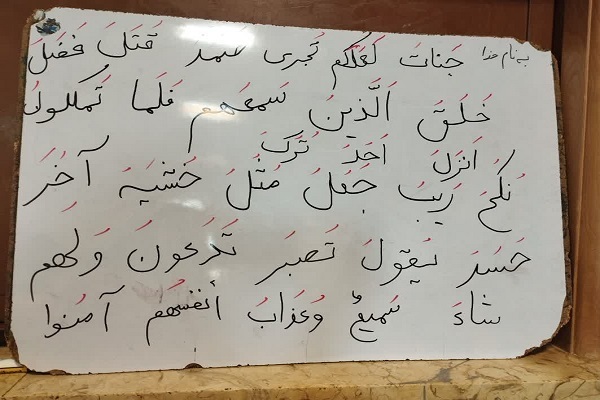 به نام خدا جَنات لَعَلَکُم تُجری صمد قُتَلَ
خَلَقَ الَّذینَ سَمعَهُم فَلَما
اَنزَلَ اَحَدَ تُرَکَ
رَیبَ جَعَلَ مَثَلَ خَشیَهَ آخَرَ
حَسَدَ یَقولَ تُصبَرَ وَلَهُم
شاءَ سَمیعٌ وَعَذابُ أنفُسَهُم آمَنُوا